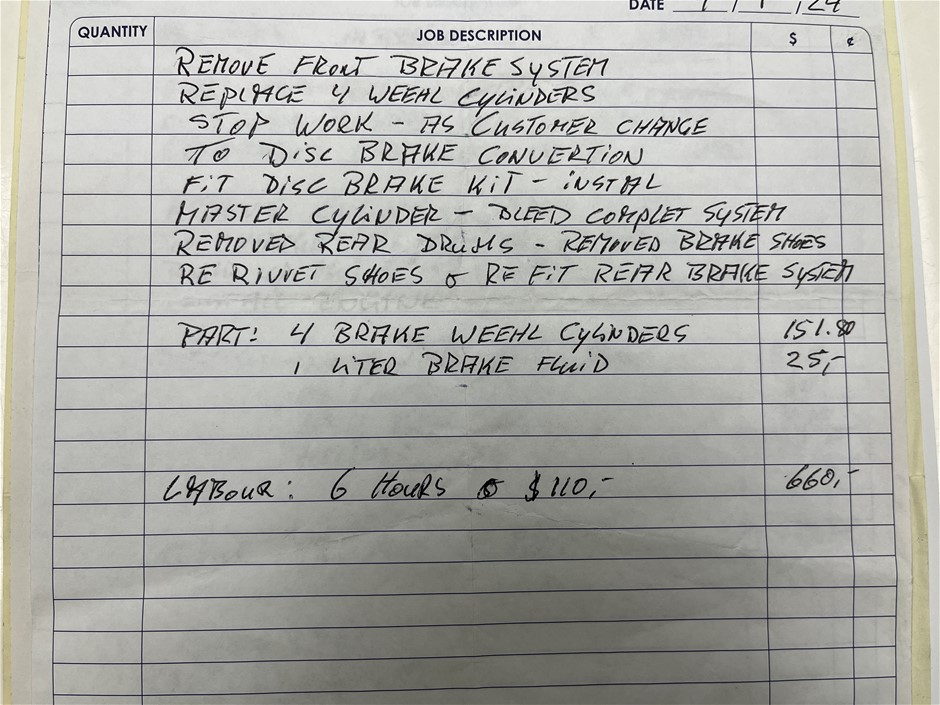 DATE 1 / 1 / 24
QUANTITY JOB DESCRIPTION $ ¢
REMOVE FRONT BRAKE SYSTEM
REPLACE 4 WEEHL CYLINDERS
STOP WORK - AS CUSTOMER CHANGE
TO DISC BRAKE CONVERTION
FIT DISC BRAKE KIT - INSTAL
MASTER CYLINDER - BLEED COMPLET SYSTEM
REMOVED REAR DRUMS - REMOVED BRAKE SHOES
RE RIVVET SHOES & RE FIT REAR BRAKE SYSTEM
PART: 4 BRAKE WEEHL CYLINDERS 151.80
1 LITER BRAKE FLUID 25,-
LABOUR: 6 HOURS @ $110,- 660,-